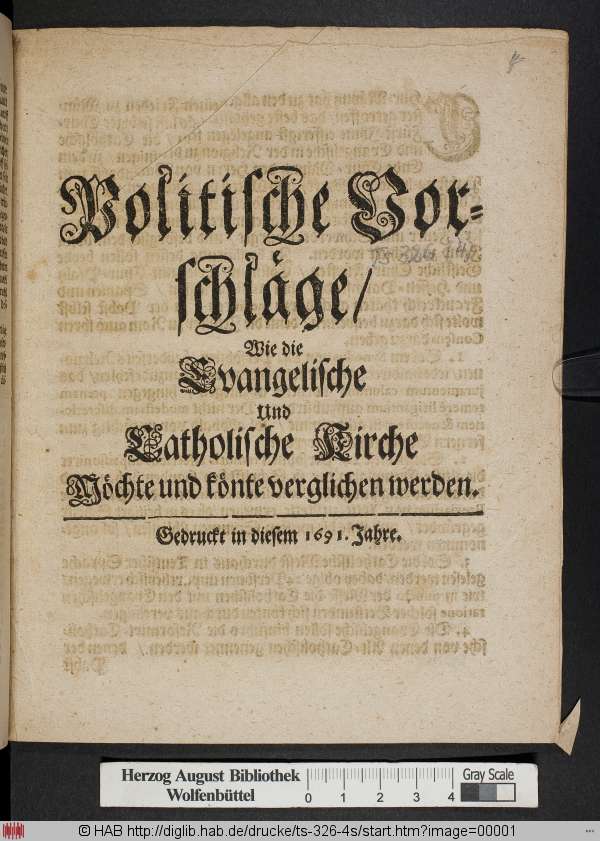 Politische Vor-
schläge/
Wie die
Evangelische
Und
Catholische Kirche
Möchte und könte verglichen werden.
Gedruckt in diesem 1691. Jahre.
Herzog August Bibliothek
Wolfenbüttel
0 1 2 3 4
Gray Scale
© HAB http://diglib.hab.de/drucke/ts-326-4s/start.htm?image=00001